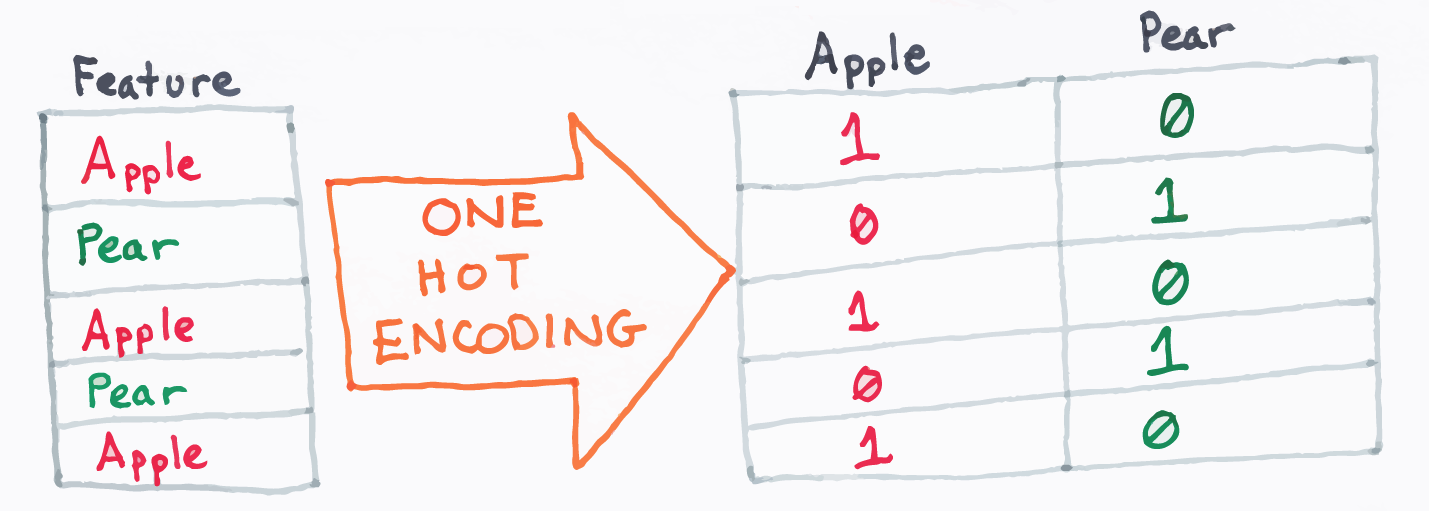 Feature
Apple
Pear
Apple
Pear
Apple
ONE
HOT
ENCODING
Apple Pear
1 0
0 1
1 0
0 1
1 0